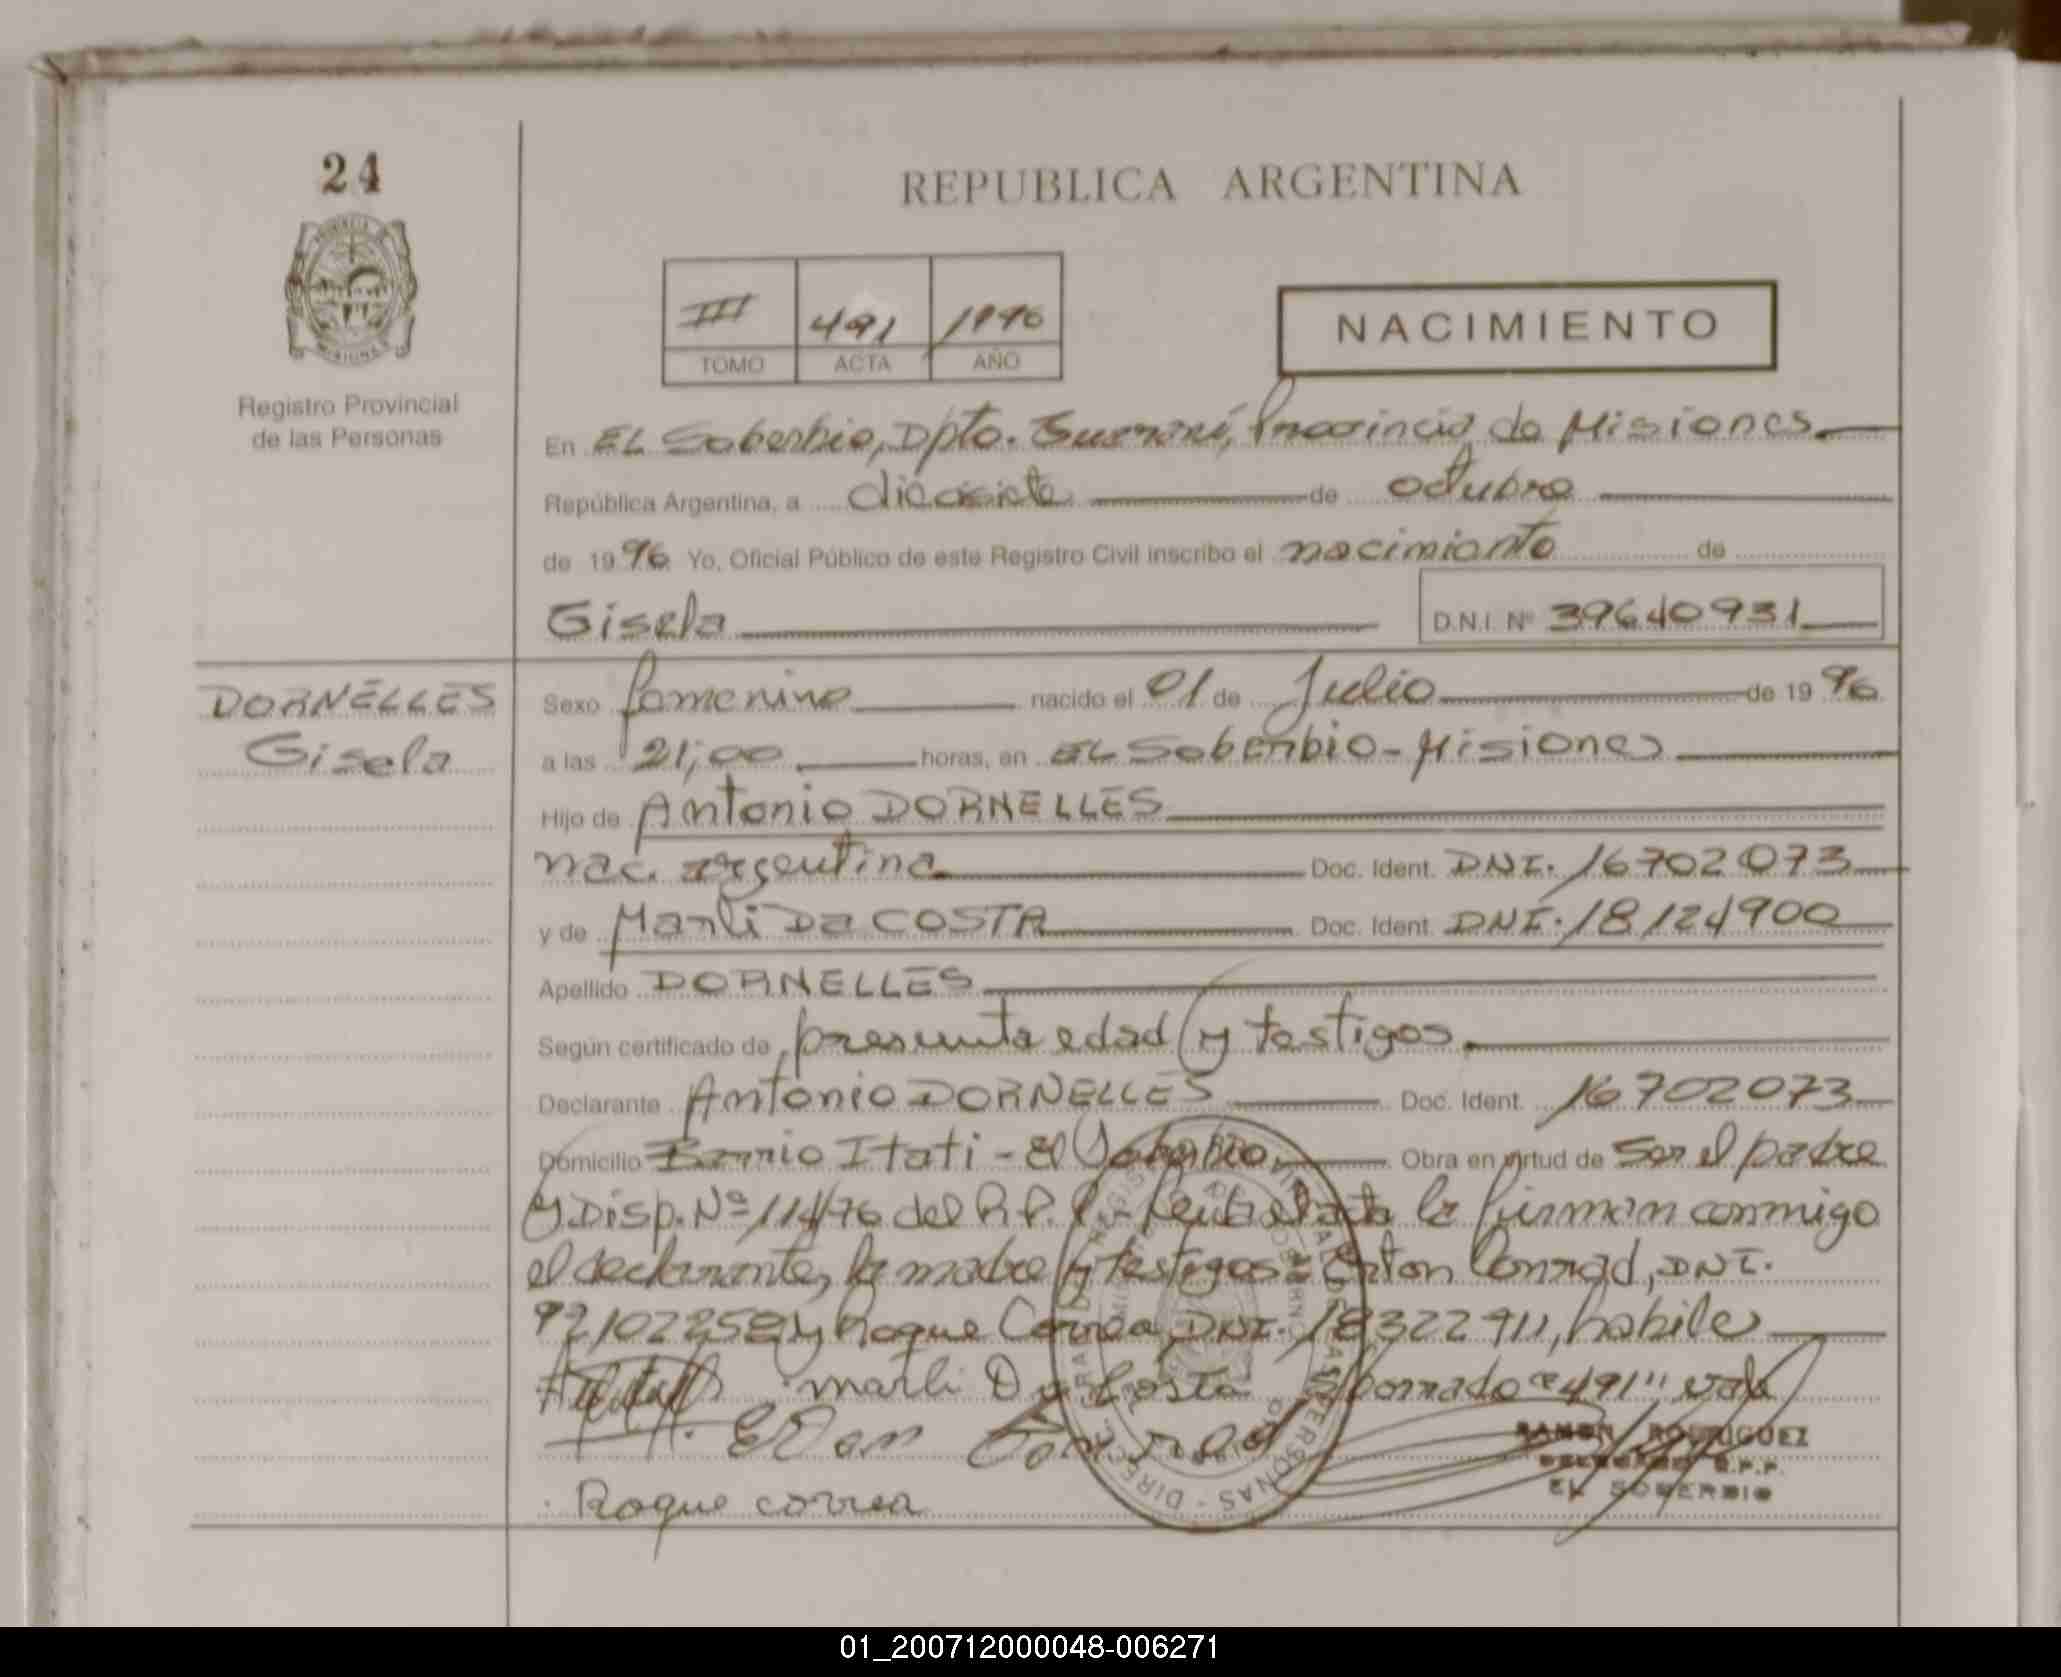 24
REPUBLICA ARGENTINA
III 491 1996
TOMO ACTA AÑO
NACIMIENTO
Registro Provincial
de las Personas
En EL Soberbio, Dpto. Guaraní, Provincia de Misiones.
República Argentina, a diecisiete de octubre
de 1996 Yo, Oficial Público de este Registro Civil inscribo el nacimiento de
Gisela D.N.I. Nº 39640931
DORNELLES
Gisela
Sexo femenino nacido el 01 de Julio de 1996
a las 21,00 horas, en EL Soberbio - Misiones
Hijo de Antonio DORNELLES
nac. argentina Doc. Ident. DNI. 16702073
y de Marli Da COSTA Doc. Ident. DNI. 18124900
Apellido DORNELLES
Según certificado de presunta edad y testigos.
Declarante Antonio DORNELLES Doc. Ident. 16702073
Domicilio Barrio Itati - El Soberbio. Obra en virtud de ser el padre
y Disp. Nº 114/96 del R.P.P. Leida el acta la firman conmigo
el declarante, la madre y testigos: Conrad, DNI.
92102258 y Roque Correa, DNI. 18322911, habiles
marli Da Costa borrado "491" vale
Roque correa
RAMON RODRIGUEZ
DELEGADO R.P.P.
EL SOBERBIO
01_200712000048-006271